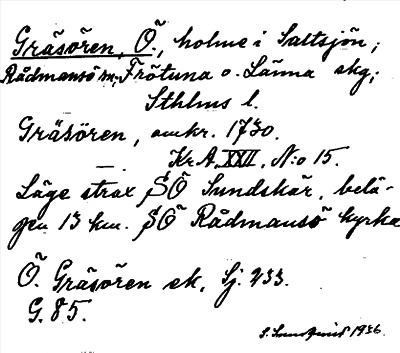 Gräsören, Ö., holme i Saltsjön;
Rådmansö m, Frötuna o. Länna skg;
Sthlms l.
Gräsören, omkr. 1730.
— KrA, XXII, N:o 15.
Läge strax SÖ Sundskär, belä-
gen 13 km. SÖ Rådmansö kyrka
Ö. Gräsören ek, Sj. 233.
G. 85.
1936